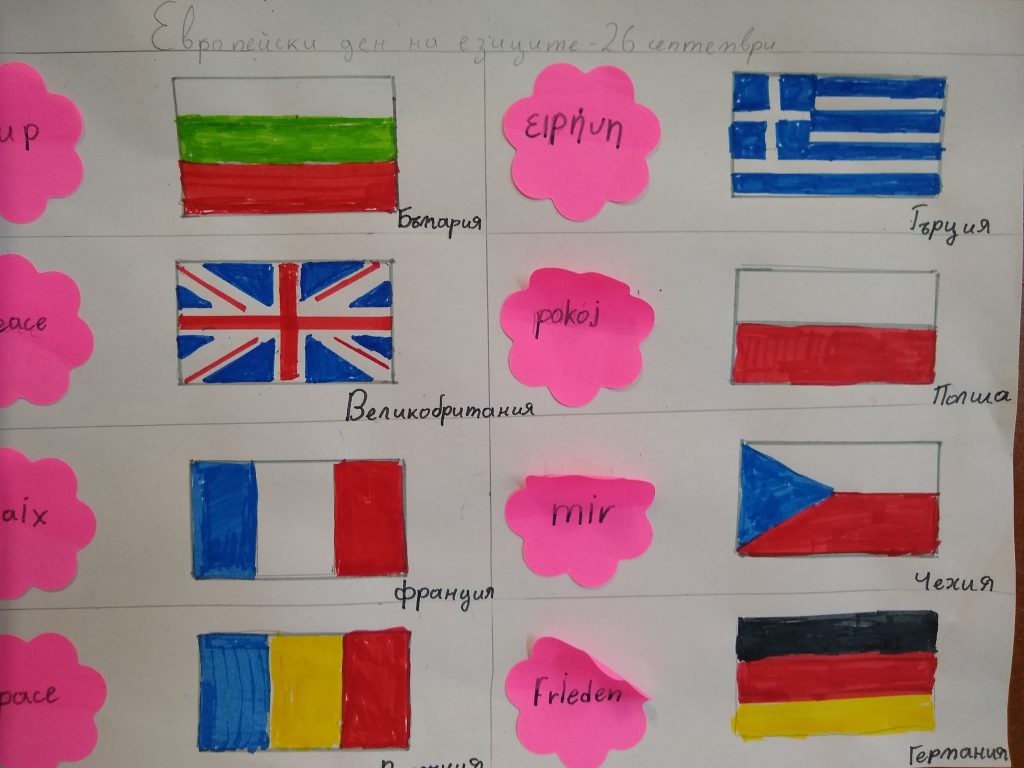 Европейски ден на езиците - 26 септември
ир
България
ειρήνη
Гърция
eace
Великобритания
pokój
Полша
aix
франция
mir
Чехия
pace
Frieden
Германия